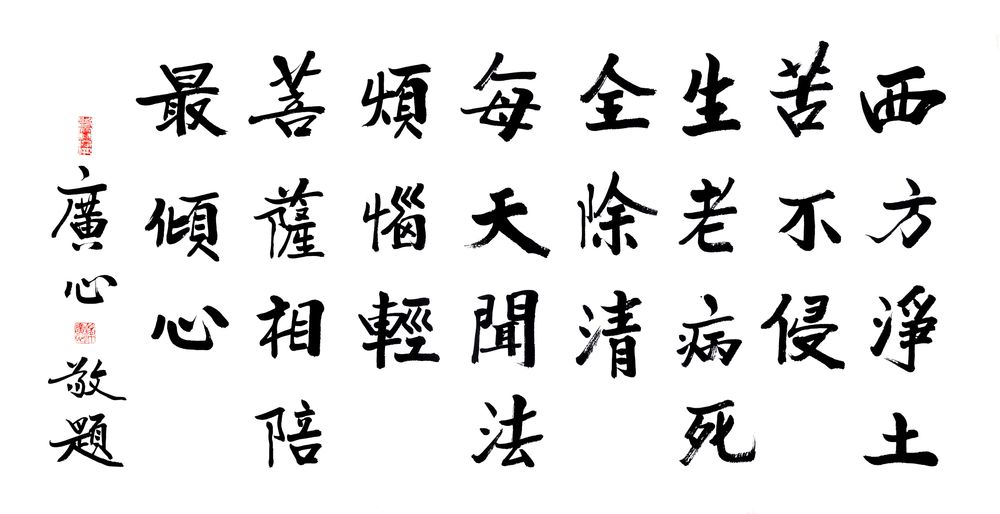 西方淨土
苦不侵
生老病死
全除清
每天聞法
煩惱輕
菩薩相陪
最傾心
廣心敬題